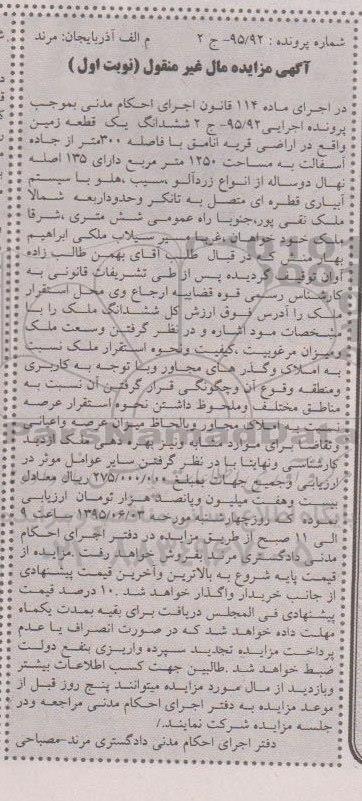 شماره پرونده : ۹۵/۹۲- ج ۲ م الف آذربایجان: مرند
آگهی مزایده مال غیر منقول (نوبت اول )
در اجرای ماده ۱۱۴ قانون اجرای احکام مدنی بموجب
پرونده اجرایی۹۵/۹۲- ج ۲ ششدانگ یک قطعه زمین
واقع در اراضی قریه انامق با فاصله ۳۰۰متر از جاده
آسفالت به مساحت ۱۲۵۰ متر مربع دارای ۱۳۵ اصله
نهال دوساله از انواع زردآلو ،سیب ،هلو با سیستم
آبیاری قطره ای متصل به تانکر وحدوداربعه شمالا
ملک نقی پور،جنوبا راه عمومی شش متری ،شرقا
ملک خود خواهان ،غربا سیلاب ملکی ابراهیم
که در قبال طلب آقای بهمن طالب زاده
گردیده پس از طی تشریفات قانونی به
کارشناس رسمی قوه قضاییه ارجاع وی محل استقرار
ملک را آدرس فوق ارزش کل ششدانگ ملک را با
مشخصات مورد اشاره و در نظر گرفتن وسعت ملک
ومیزان مرغوبیت ،کیفیت ونحوه استقرار ملک نسبت
به املاک وگذر های مجاور وبا توجه به کاربری
ومنطقه وقوع آن وچگونگی قرار گرفتن آن نسبت به
مناطق مختلف وملحوظ داشتن نحوه استقرار عرصه
نسبت به املاک مجاور وبالحاظ میزان عرصه واعیانی
ملک ازدید
کارشناسی ونهایتا با در نظر گرفتن سایر عوامل موثر در
ارزیابی وجمیع جهات بمبلغ ۲۷۵/۰۰۰/۰۰۰ ریال معادل
بیست وهفت میلیون وپانصد هزار تومان ارزیابی
نموده که روزچهارشنبه مورخه ۱۳۹۵/۰۶/۰۳ ساعت ۹
الی ۱۱ صبح از طریق مزایده در دفتر اجرای احکام
مدنی دادگستری مرند بفروش خواهد رفت. مزایده از
قیمت پایه شروع به بالاترین وآخرین قیمت پیشنهادی
از جانب خریدار واگذار خواهد شد .۱۰ درصد قیمت
پیشنهادی فی المجلس دریافت برای بقیه بمدت یکماه
مهلت داده خواهد شد که در صورت انصراف یا عدم
پرداخت مزایده تجدید سپرده واریزی بنفع دولت
ضبط خواهد شد .طالبین جهت کسب اطلاعات بیشتر
وبازدید از مال مورد مزایده میتوانند پنج روز قبل از
موعد مزایده به دفتر اجرای احکام مدنی مراجعه ودر
جلسه مزایده شرکت نمایند./
دفتر اجرای احکام مدنی دادگستری مرند-مصباحی